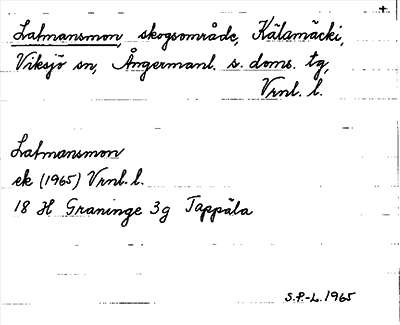 +
Latmansmon, skogsområde, Kälamäcki,
Viksjö sn, Ångermanl. s. doms. tg,
Vrnl. l.
Latmansmon
ek (1965) Vrnl. l.
18 H Graninge 3g Tappäla
S.P.-L. 1965